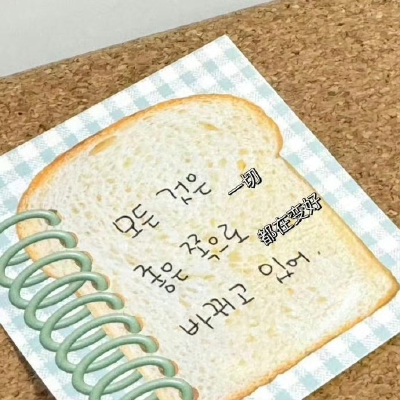 모든 것은
一切
좋은 쪽으로
都在变好
바뀌고 있어